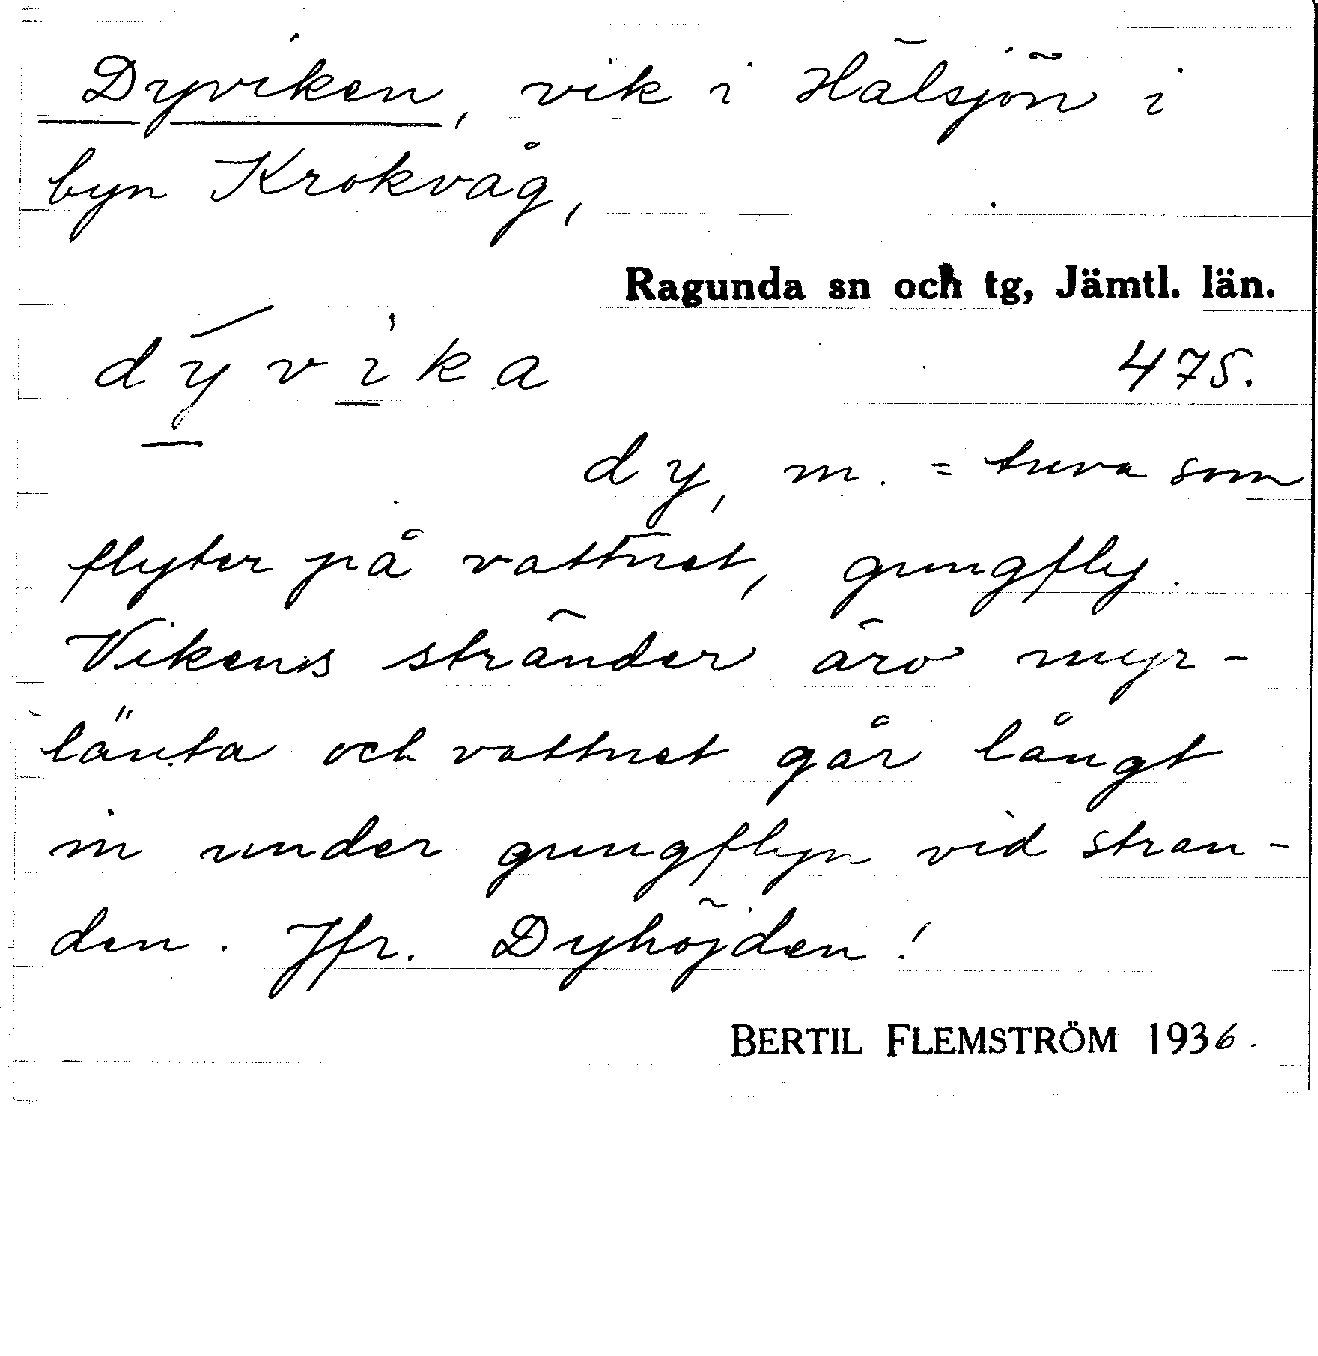 Dyviken, vik i Hälsjön i
byn Krokvåg,
Ragunda sn och tg, Jämtl. län.
dývìka 475.
dy, m. = tuva som
flyter på vattnet, gungfly.
Vikens stränder äro myr-
länta och vattnet går långt
in under gungflyn vid stran-
den. Jfr. Dyhöjden!
BERTIL FLEMSTRÖM 1936.